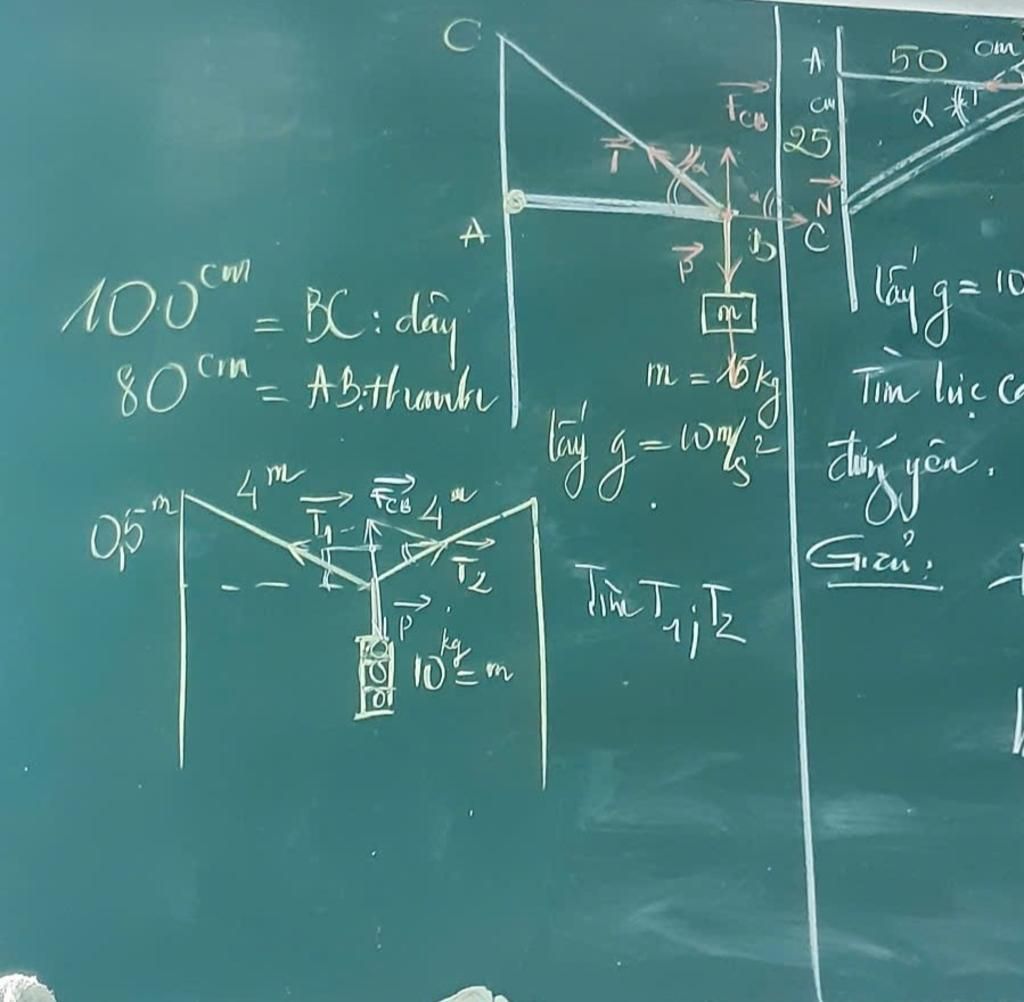 C
F_CB
T
α
α
A
B
P
m
100 cm = BC: dây
80 cm = AB: thanh
m = 15 kg
lấy g = 10 m/s²
0,5 m
4 m
T₁
F_CB
4 m
T₂
P
10 kg = m
Tìm T₁; T₂
A
50
cm
25
α
N
C
lấy g = 10
Tìm lực c
đứng yên.
Giải: